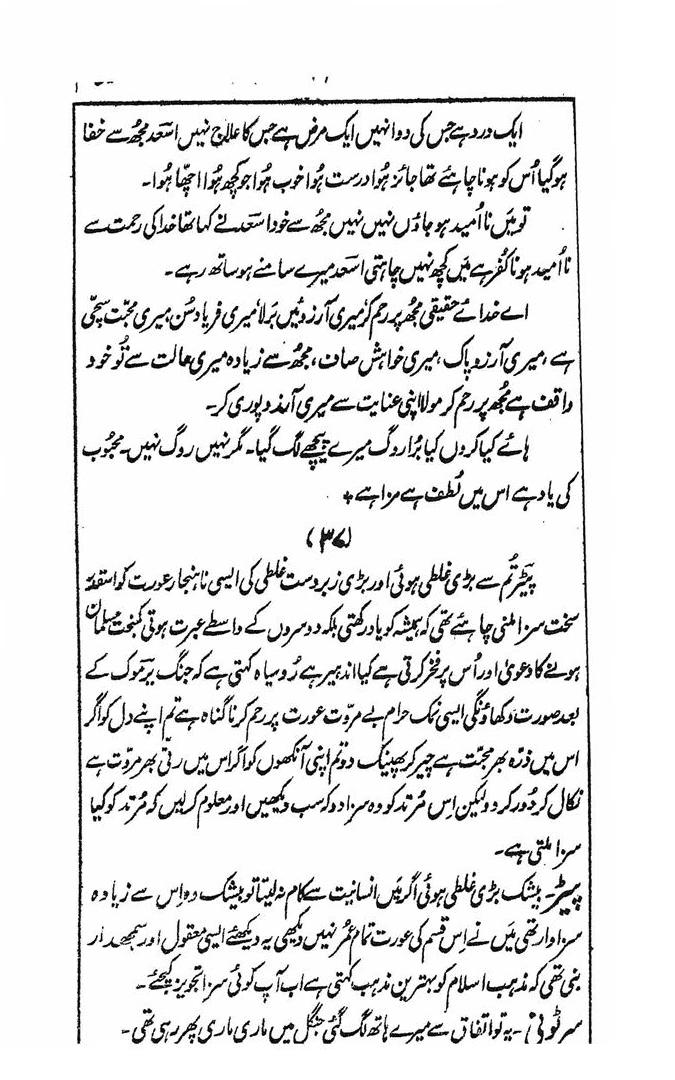 ایک درد ہے جس کی دوا نہیں ایک مرض ہے جس کا علاج نہیں اسعد مجھ سے خفا
ہوگیا اُس کو ہونا چاہئے تھا جائز ہُوا درست ہُوا خوب ہُوا جو کچھ ہُوا اچھا ہُوا۔
تو میَں نا اُمید ہو جاؤں نہیں نہیں مجھ سے خود اسعد نے کہا تھا خدا کی رحمت سے
نا اُمید ہونا کفر ہے میَں کچھ نہیں چاہتی اسعد میرے سامنے ہو ساتھ رہے۔
اے خدائے حقیقی مجھ پر رحم کر میری آرزوئیں بَر لا میری فریاد سُن، میری محبت سچّی
ہے، میری آرزو پاک، میری خواہش صاف، مجھ سے زیادہ میری حالت سے تُو خود
واقف ہے مجھ پر رحم کر مولا اپنی عنایت سے میری آرزو پوری کر۔
ہائے کیا کروں کیا بُرا روگ میرے پیچھے لگ گیا۔ مگر نہیں روگ نہیں۔ محبوب
کی یاد ہے اس میں لُطف ہے مزا ہے ٭
(۳۷)
پیٹر تُم سے بڑی غلطی ہوئی اور بڑی زبردست غلطی کی ایسی ناہنجار عورت کو اسقدر
سخت سزا ملنی چاہئے تھی کہ ہمیشہ کو یاد رکھتی بلکہ دوسروں کے واسطے عبرت ہوتی کمبخت مسلمان
ہونے کا دعویٰ اور اُس پر فخر کرتی ہے کیا اندھیر ہے رُوسیاہ کہتی ہے کہ جنگ یرموک کے
بعد صورت دکھاؤنگی ایسی نمک حرام بے مروّت عورت پر رحم کرنا گناہ ہے تم اپنے دل کو اگر
اس میں ذرّہ بھر محبّت ہے چیر کر پھینک دو تم اپنی آنکھوں کو اگر اس میں رتّی بھر مروّت ہے
نکال کر دُور کر دو لیکن اِس مُرتد کو وہ سزا دو کہ سب دیکھیں اور معلوم کر لیں کہ مُرتد کو کیا
سزا ملتی ہے۔
پیٹر۔ بیشک بڑی غلطی ہوئی اگر میَں انسانیت سے کام نہ لیتا تو بیشک وہ اِس سے زیادہ
سزاوار تھی میَں نے اِس قسم کی عورت تمام عُمر نہیں دیکھی یہ دیکھئے ایسی معقول اور سمجھدار
بنی تھی کہ مذہب اسلام کو بہترین مذہب کہتی ہے اب آپ کوئی سزا تجویز کیجئے۔
سرٹونی۔ یہ تو اتفاق سے میرے ہاتھ لگ گئی جنگل میں ماری ماری پھر رہی تھی۔